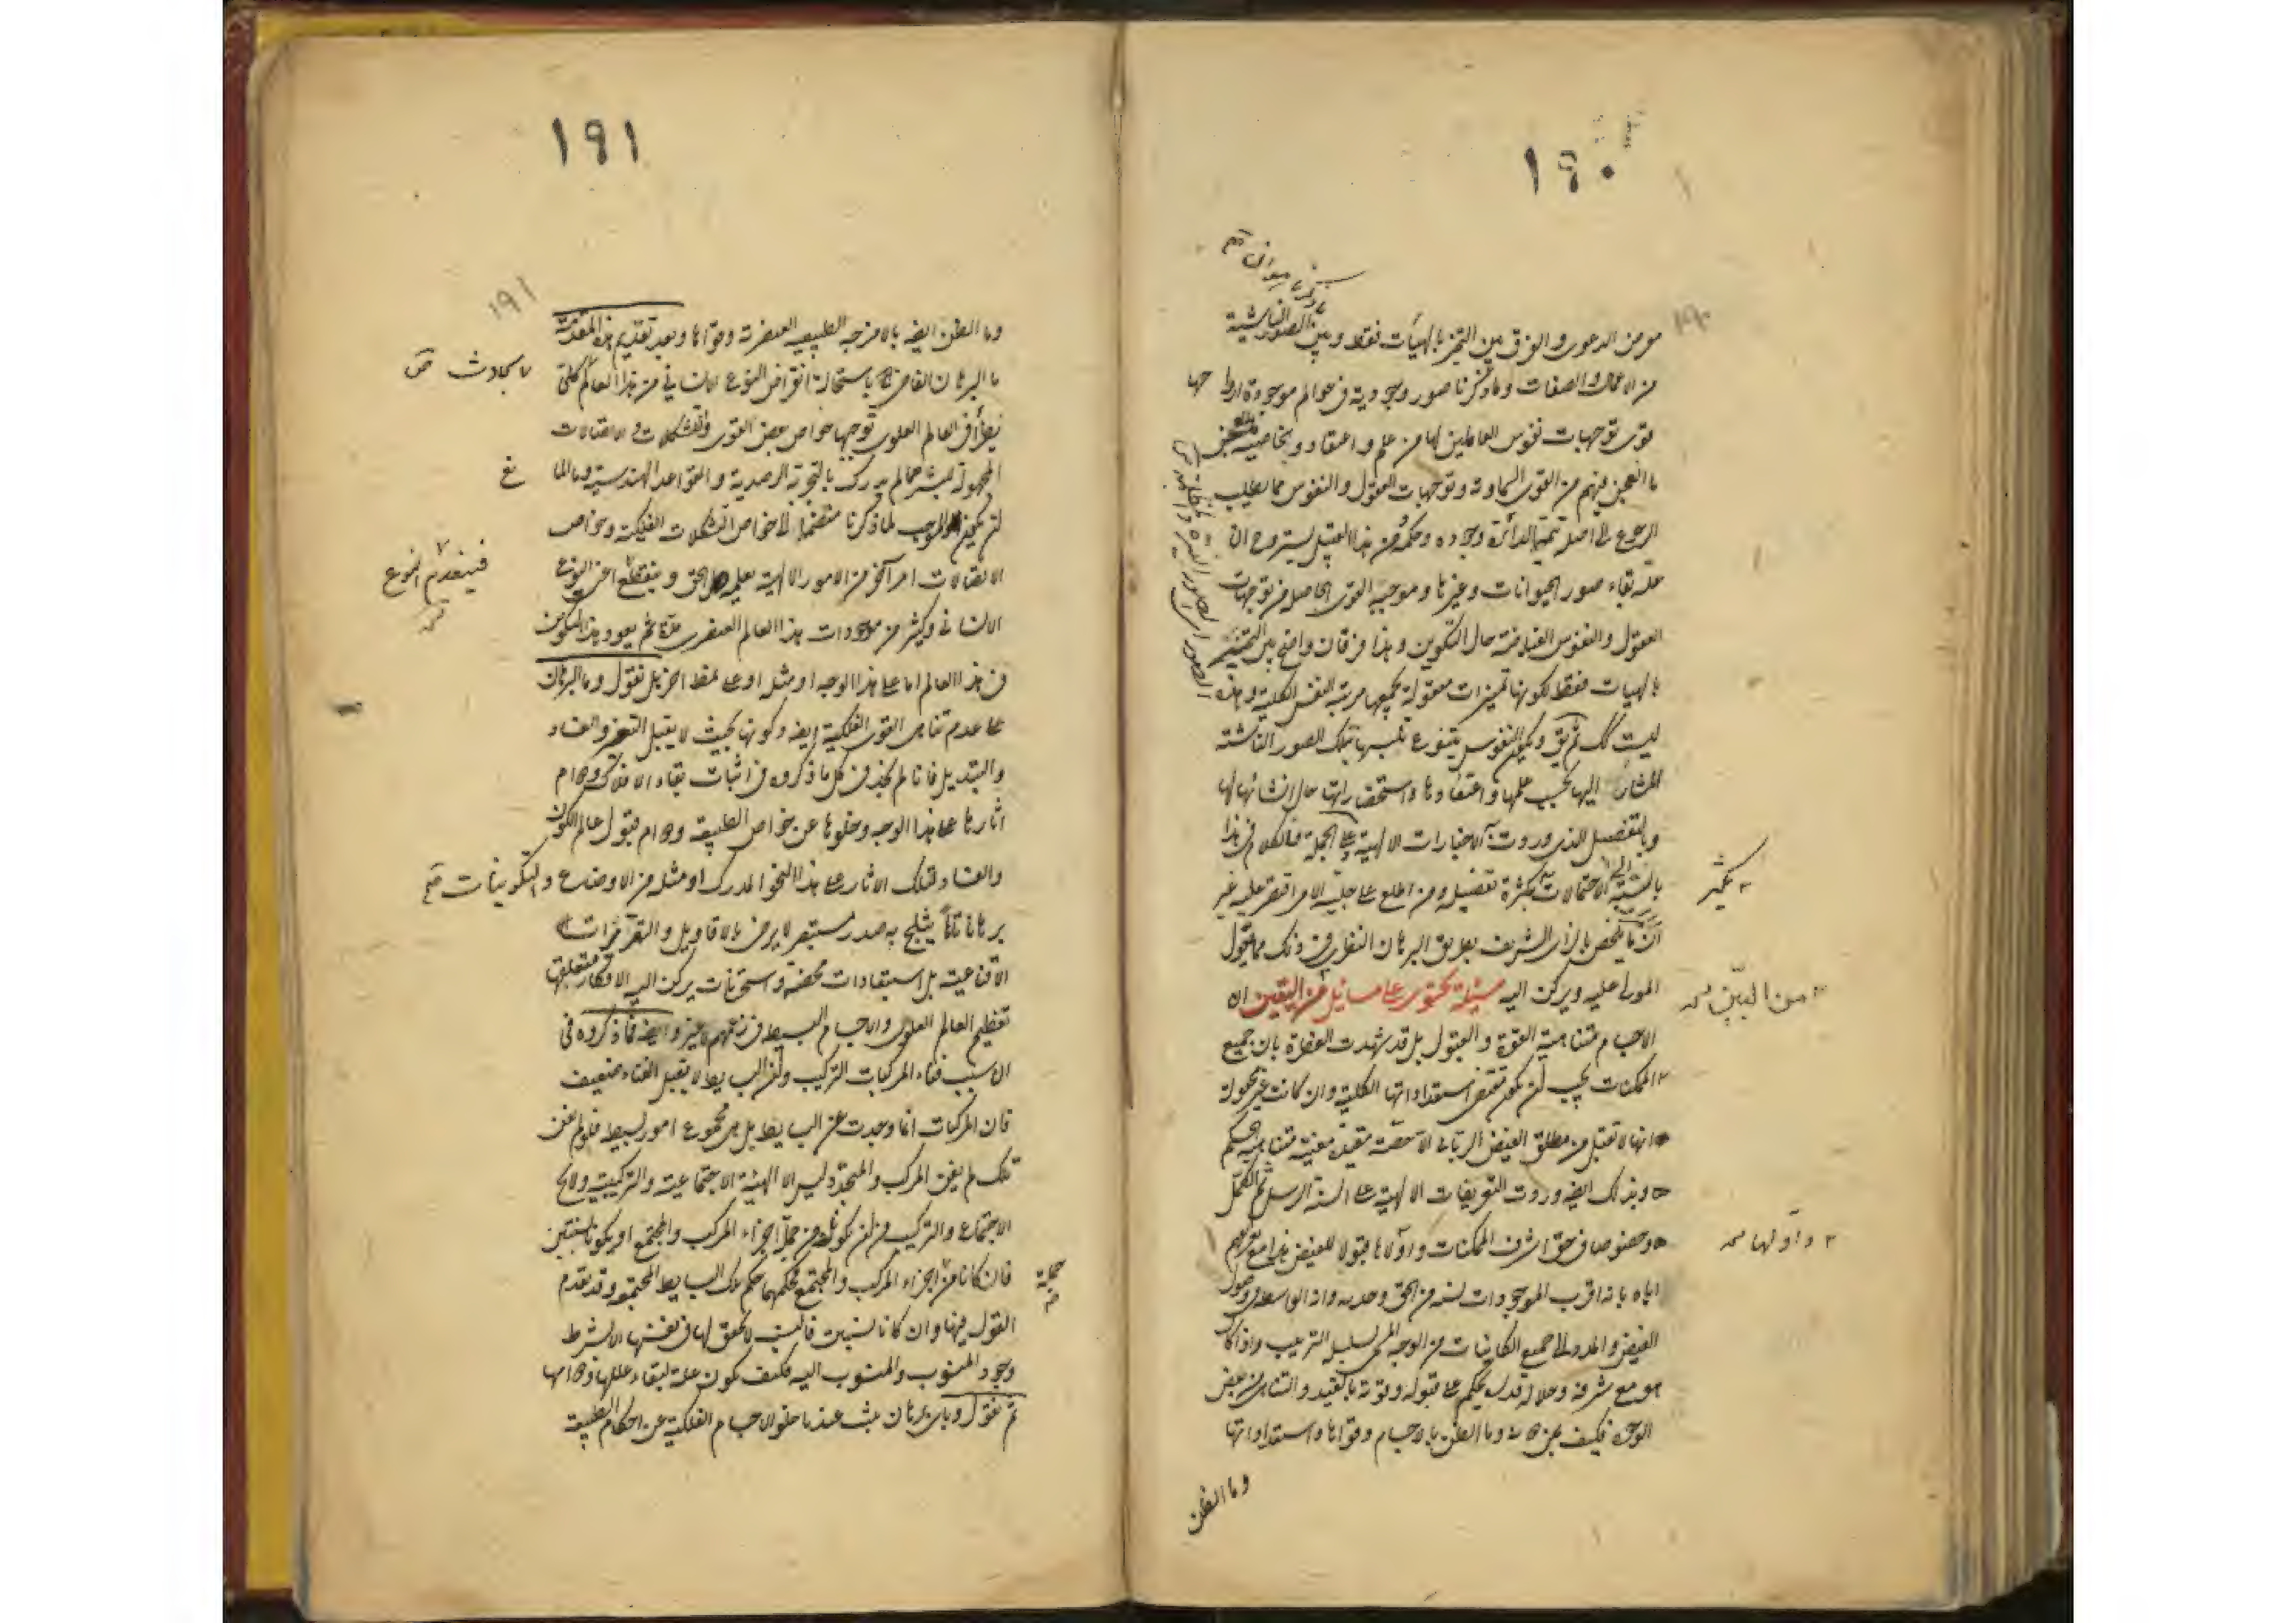 ١٩٠
١٩٠
من الدعوى والفرق بين التميز بالهيئات فقط وبين الصور الناشية
من الاعمال والصفات وما ذكرنا صور وجودية في عوالم موجودة
قوى توجهات نفوس العاملين لها من علم واعتقاد وبخاصية
ما انعجن فيهم من القوى السماوية وتوجهات العقول والنفوس مما يطلب
الرجوع الى اصله تتميما لدائرة وجوده وحكمه ومن هذا القبيل يستروح ان
علة بقاء صور الحيوانات وغيرها وموجبه القوى الحاصلة من توجهات
العقول والنفوس الفياضة حال التكوين وهذا فرقان واضح بين التميز
بالهيات فقط لكونها تميزات معقولة يجمعها مرتبة النفس الكلية وهذه
ليست كك ثم نقول وتلك النفوس يتنوع تلبسها بتلك الصور الناشئة
المشار اليها بحسب علمها واعتقادها واستحضاراتها حال انشائها لها
وبالتفصيل الذي وردت به الاخبارات الالهية وعلى الجملة فالكلام في هذا
بالنسبة الى الاحتمالات يكثر تفصيله ومن اطلع على جلية الامر اقتصر عليه غير
ان ما يختص بالراى الشريف بطريق البرهان النظرى في ذلك مما يقول
المورد عليه ويركن اليه مسئلة تحتوى على مسائل من اليقين ان
الاجسام متناهية القوة والقبول بل قد شهدت الفطرة بان جميع
الممكنات يجب ان يكون مقتضى استعداداتها الكلية وان كانت غير مجعولة
انها لا تقبل من مطلق الفيض الربانى الا حصة مقيدة معينة متناهية الحكم
وبذلك ايضا وردت التعريفات الالهية على السنة الرسل ثم الكمل
وخصوصا في حق اشرف الممكنات واولاها قبولا للفيض هذا مع تعريفهم
اياه بانه اقرب الموجودات نسبة من الحق وحده وانه الواسطة في وصول
الفيض والمدد الى جميع الكاينات من الوجه الكلى لسلسلة الترتيب واذا كان
هو مع شرفه وجلالة قدره يحكم على قبوله وقوته بالتقييد والتناهى من بعض
الوجوه فكيف بمن دونه وما الظن بالاجسام وقواها واستعداداتها
من البيّن
واولها
وما الظن
١٩١
١٩١
وما الظن ايضا بالامزجة الطبيعية العنصرية وقواها وبعد تقديم هذه المقدمة
ما البرهان القاضى باستحالة انقراض النوع الانسانى من هذا العالم كلى
يطرأ في العالم العلوى توجبها خواص بعض القوى والتشكلات والاتصالات
المجهولة للبشر مما لم يدرك بالتجربة الرصدية والقواعد الهندسية وما المانع
ان يكون الموجب لما ذكرنا منضما الى خواص التشكلات الفلكية وخواص
الاتصالات امرا آخر من الامور الالهية يعلمه الحق وينقطع اعنى النوع
الانسانى وكثير من موجودات هذا العالم العنصرى مدة ثم يعود هذا التكوين
في هذا العالم اما على هذا الوجه او مثله او على نمط اخر بل نقول وما البرهان
على عدم تناهى القوى الفلكية ايضا وكونها بحيث لا يقبل التغير والفساد
والتبديل فانا لم نجد في كل ما ذكروه في اثبات بقاء الافلاك ودوام
اثارها على هذا الوجه وخلوها عن خواص الطبيعة ودوام قبول عالم الكون
والفساد لتلك الاثار على هذا النحو المدرك او مثله من الاوضاع والتكوينات
برهانا تاما يثلج به صدر مستبصر لا يرضى بالاقاويل والتقريرات
الاقناعية بل استبعادات محضة واستحسانات يركن اليها الافكار متعلقها
تعظيم العالم العلوى والاجسام البسيطة في زعمهم لا غير وايضا فما ذكروه في
ان سبب فناء المركبات التركيب وان البسايط لا يقبل الفناء ضعيف
فان المركبات انما وجدت عن البسايط بل هى مجموع امور بسيطة فلو لم تفن
تلك لم يفن المركب والمتجدد ليس الا الهيئة الاجتماعية والتركيب ولا يخ
الاجتماع والتركيب من ان يكونا من جملة اجزاء المركب والمجتمع او يكونا نسبتين
فان كانا من اجزاء المركب والمجتمع فحكمهما حكم تلك البسايط المجتمعة وقد تقدم
القول فيها وان كانا نسبتين فالنسب لا تحقق لها في نفسها الا بشرط
وجود المنسوب والمنسوب اليه فكيف تكون علة لبقاء عللها ودوامها
ثم نقول وباى برهان يثبت عندنا خلو الاجسام الفلكية عن احكام الطبيعة
فينعدم النوع
جملة